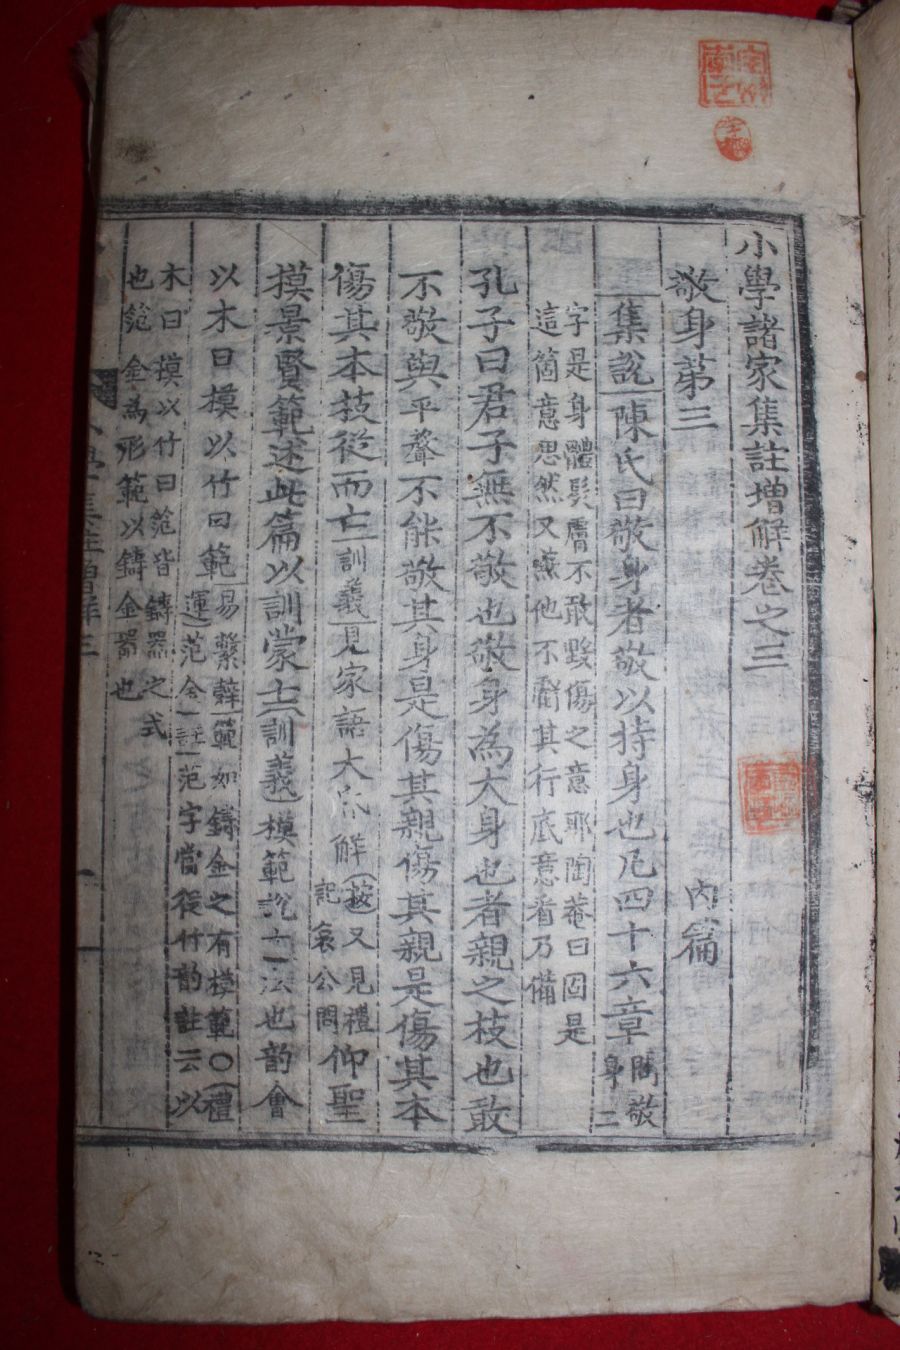 小學諸家集註增解卷之三
敬身第三 內篇
集說陳氏曰敬身者敬以持身也凡四十六章 問敬身二
字是身體髮膚不敢毀傷之意耶陶菴曰固是
這箇意思然又兼他不虧其行底意看乃備
孔子曰君子無不敬也敬身爲大身也者親之枝也敢
不敬與平聲不能敬其身是傷其親傷其親是傷其本
傷其本枝從而亡訓義見家語大昏解(按)又見禮記哀公問仰聖
摸景賢範述此篇以訓蒙士訓義模範說法也韵會
以木曰模以竹曰範易繫辭範如鑄金之有模範〇(禮
運)范金註范字當從竹韵註云以
木曰模以竹曰范皆鑄器之式
也范金爲形範以鑄金器也
小學集註增解三